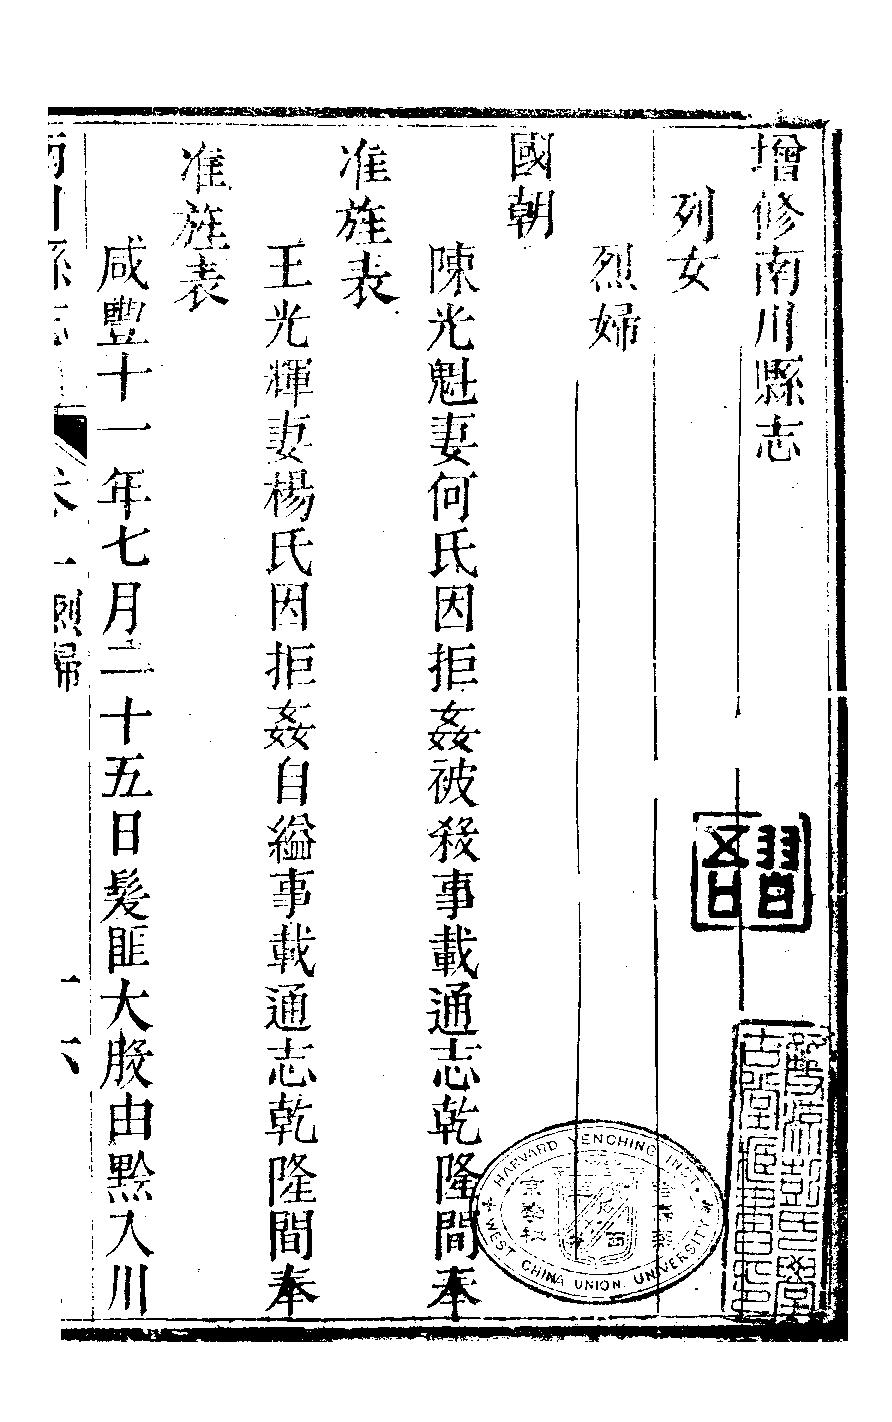 增修南川縣志
列女
烈婦
國朝
陳光魁妻何氏因拒姦被殺事載通志乾隆間奉
准旌表
王光輝妻楊氏因拒姦自縊事載通志乾隆間奉
准旌表
咸豐十一年七月二十五日髮匪大股由黔入川
南川縣志
烈婦
HARVARD YENCHING INST.
WEST CHINA UNION UNIVERSITY